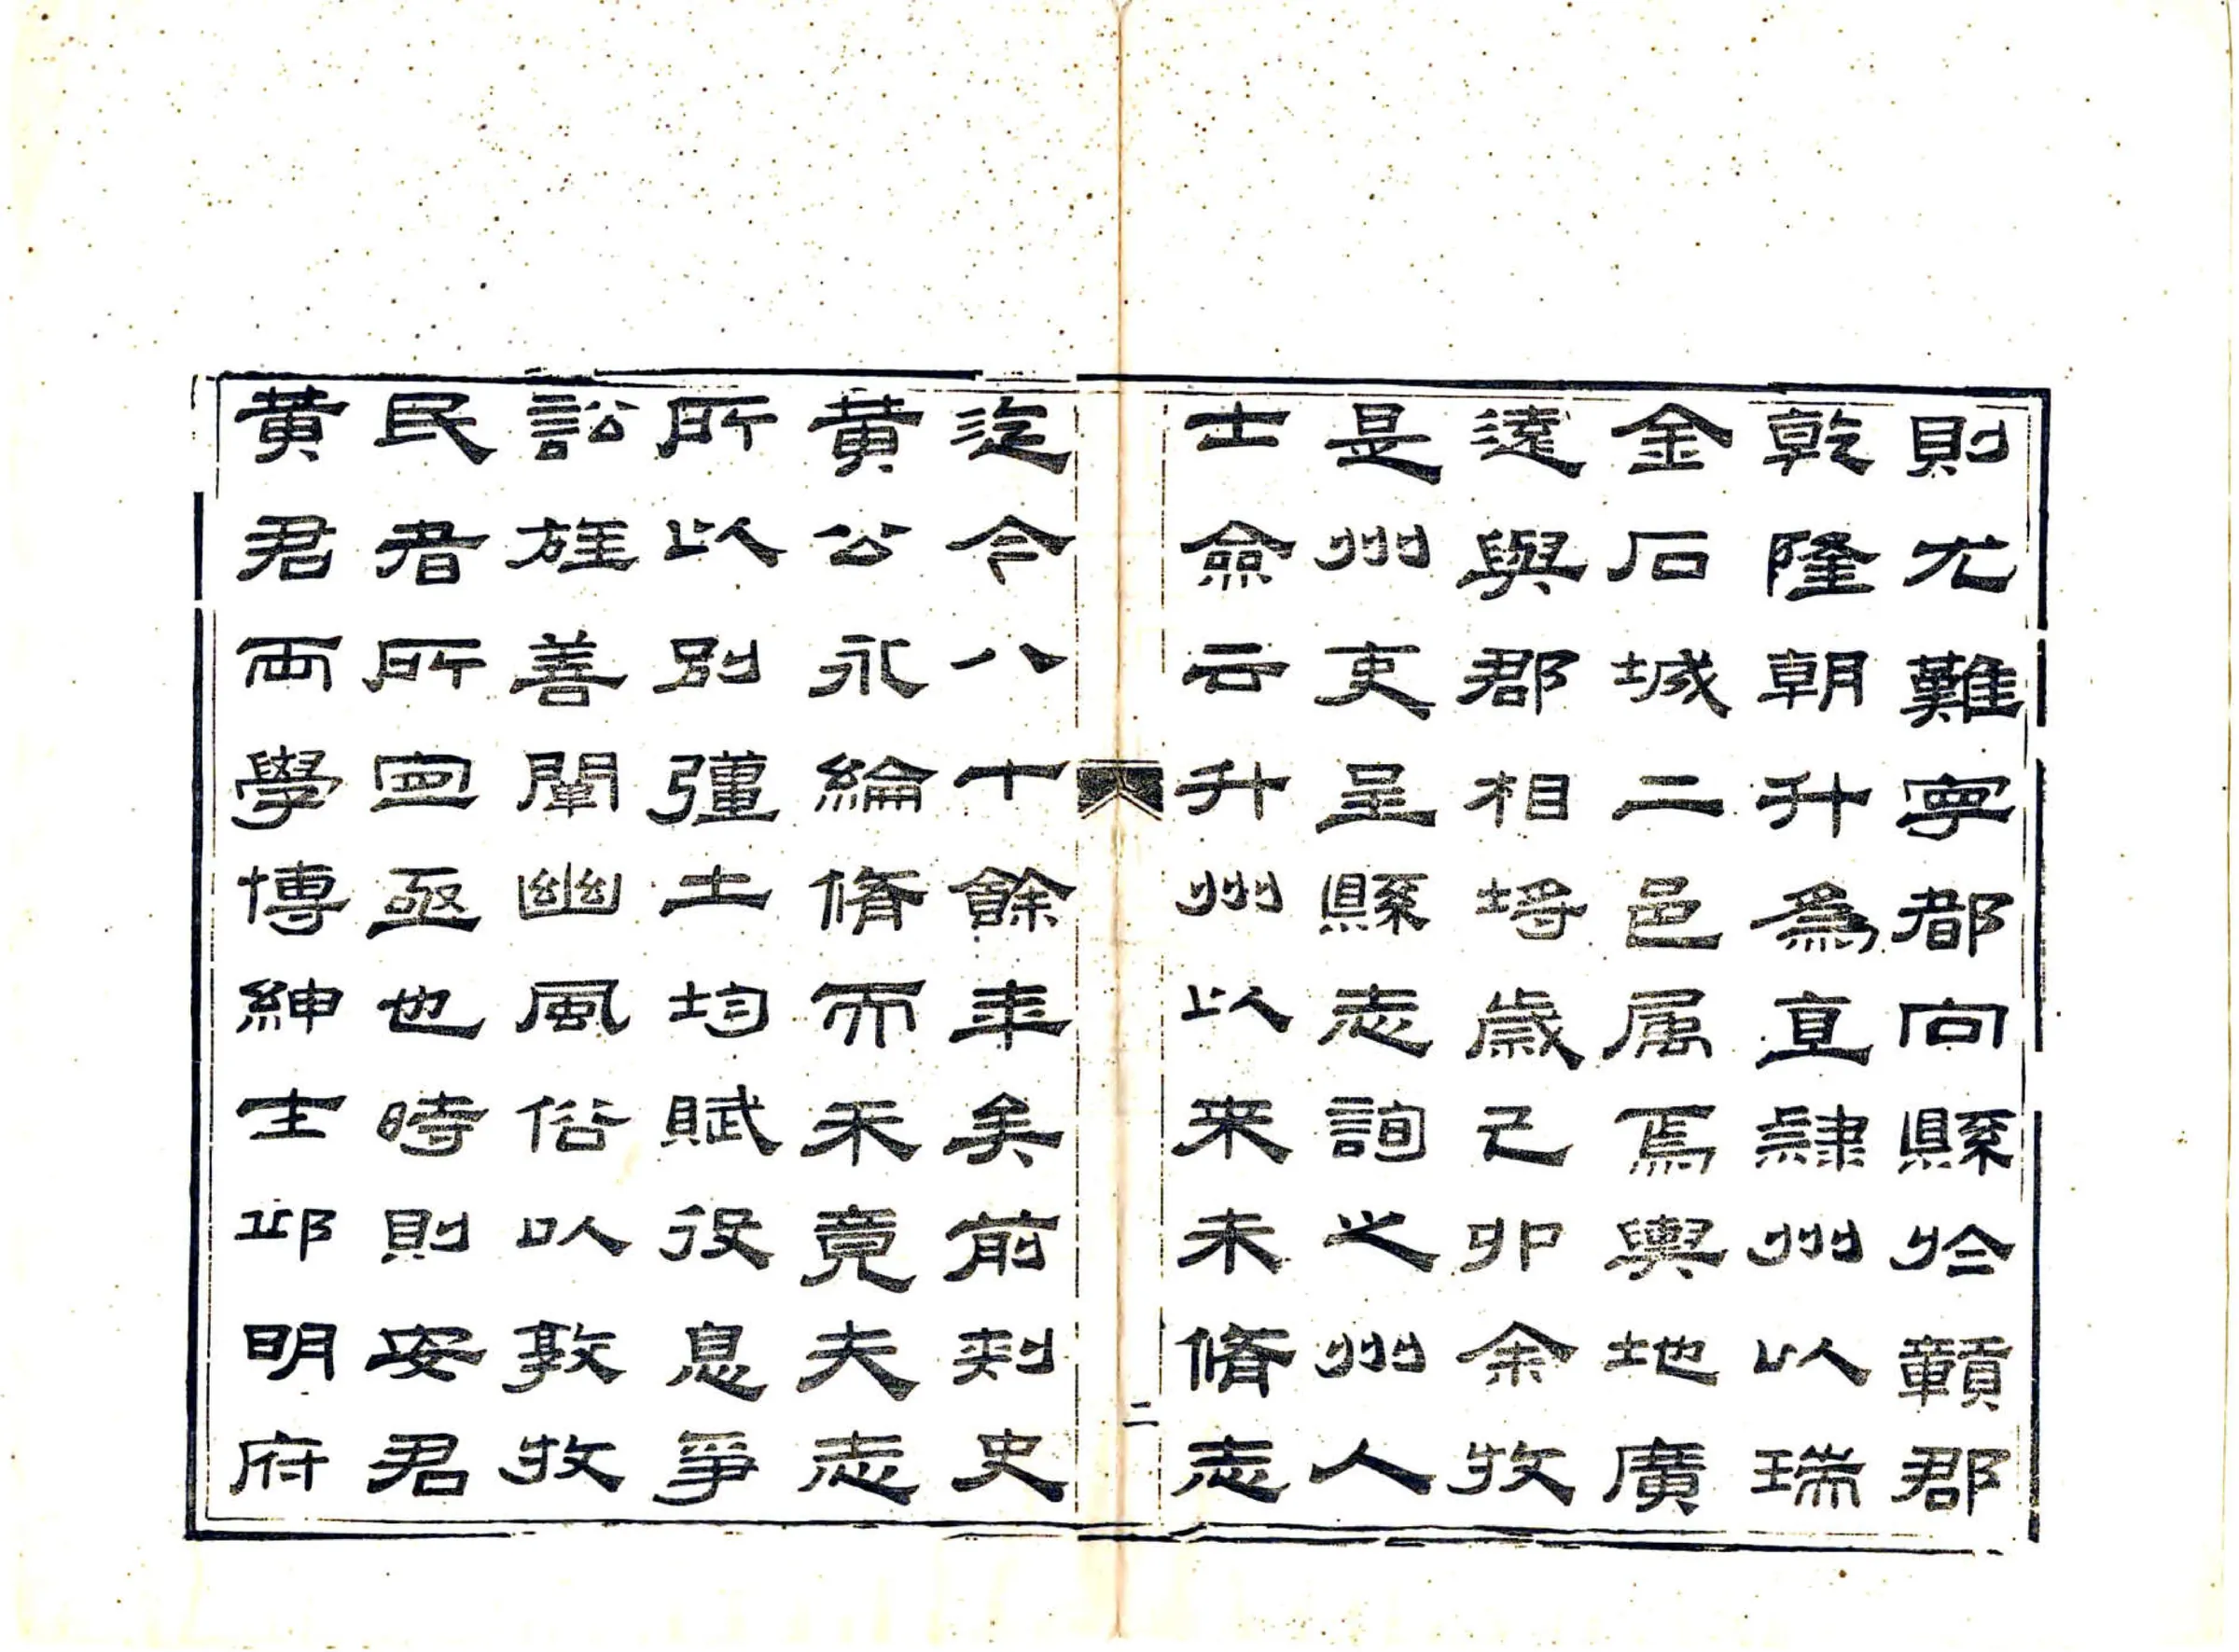 則尤難寧都向縣於贛郡
乾隆朝升為直隸州以瑞
金石城二邑属焉輿地廣
遠與郡相埒歲己卯余牧
是州吏呈縣志詢之州人
士僉云升州以来未脩志
二
迄今八十餘年矣前刾史
黄公永綸脩而不竟夫志
所以别疆土均賦役息爭
訟旌善闡幽風俗以敦牧
民者所宜亟也時則安君
黄君両學博紳士邱明府